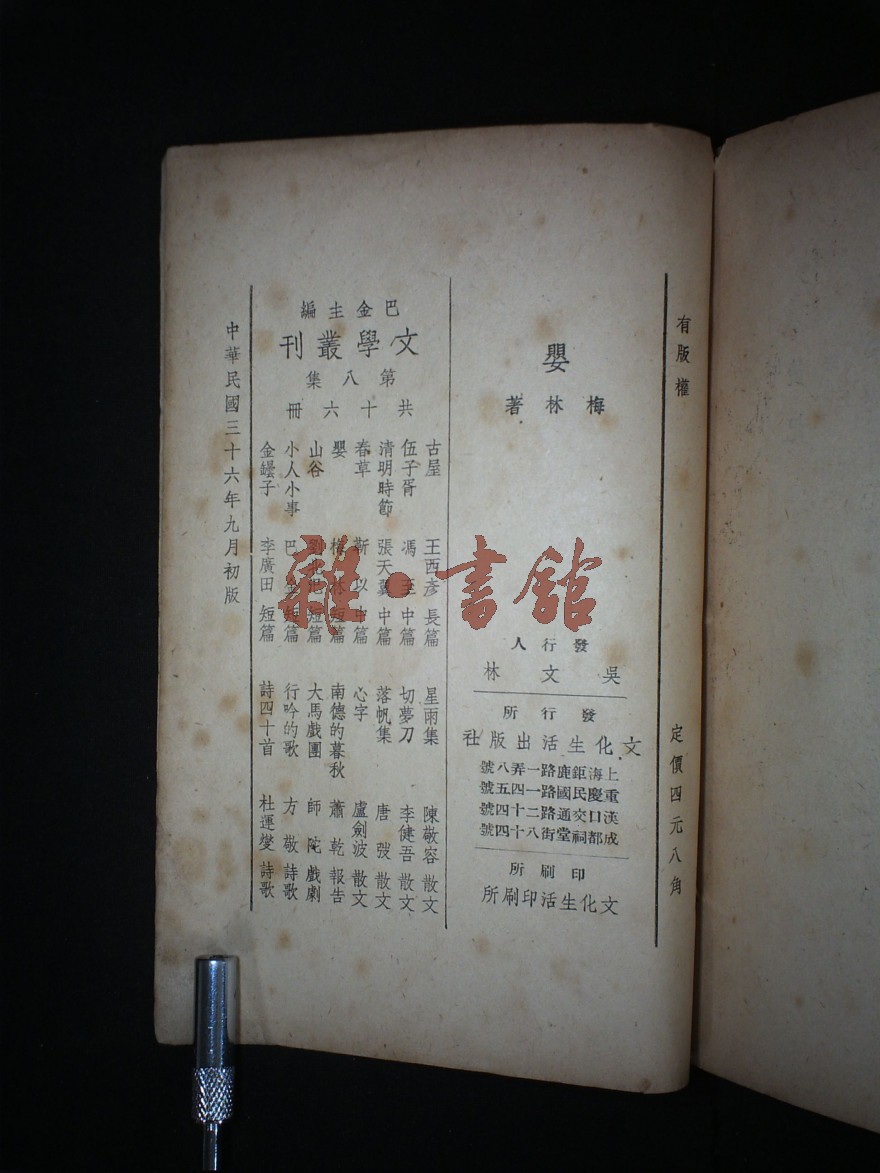 有版權
定價四元八角
嬰
梅林著
發行人
吳文林
發行所
文化生活出版社
上海鉅鹿路一弄八號
重慶民國路一四五號
漢口交通路二十四號
成都祠堂街八十四號
印刷所
文化生活印刷所
巴金主編
文學叢刊
第八集
共十六冊
古屋 王西彥 長篇
伍子胥 馮至 中篇
清明時節 張天翼 中篇
春草 靳以 中篇
嬰 梅林 短篇
山谷 劉北汜 短篇
小人小事 巴金 短篇
金罈子 李廣田 短篇
星雨集 陳敬容 散文
切夢刀 李健吾 散文
落帆集 唐弢 散文
心字 盧劍波 散文
南德的暮秋 蕭乾 報告
大馬戲團 師陀 戲劇
行吟的歌 方敬 詩歌
詩四十首 杜運燮 詩歌
中華民國三十六年九月初版
雜·書館